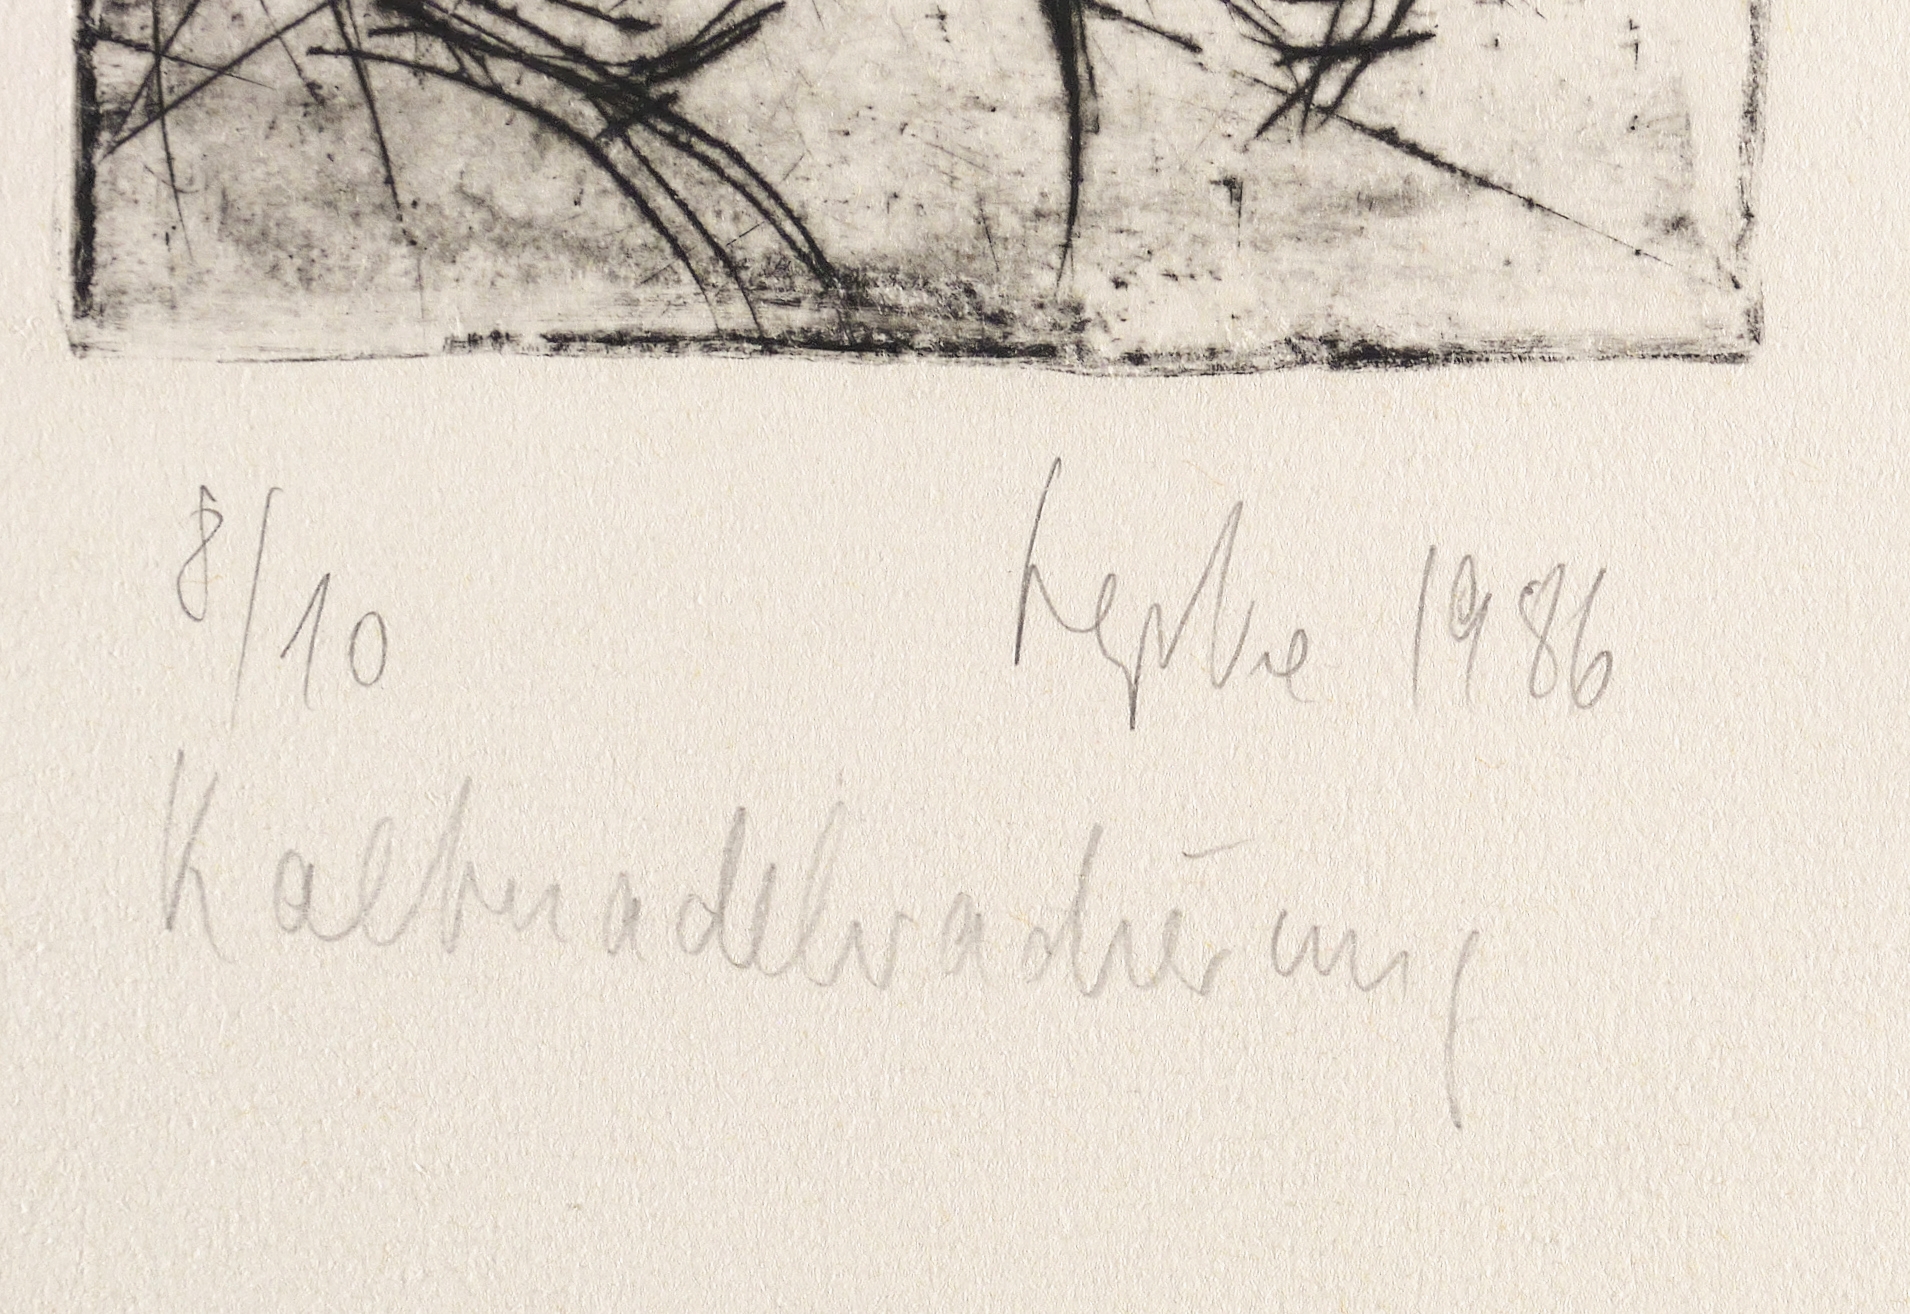 8/10 Lepke 1986
Kaltnadelradierung